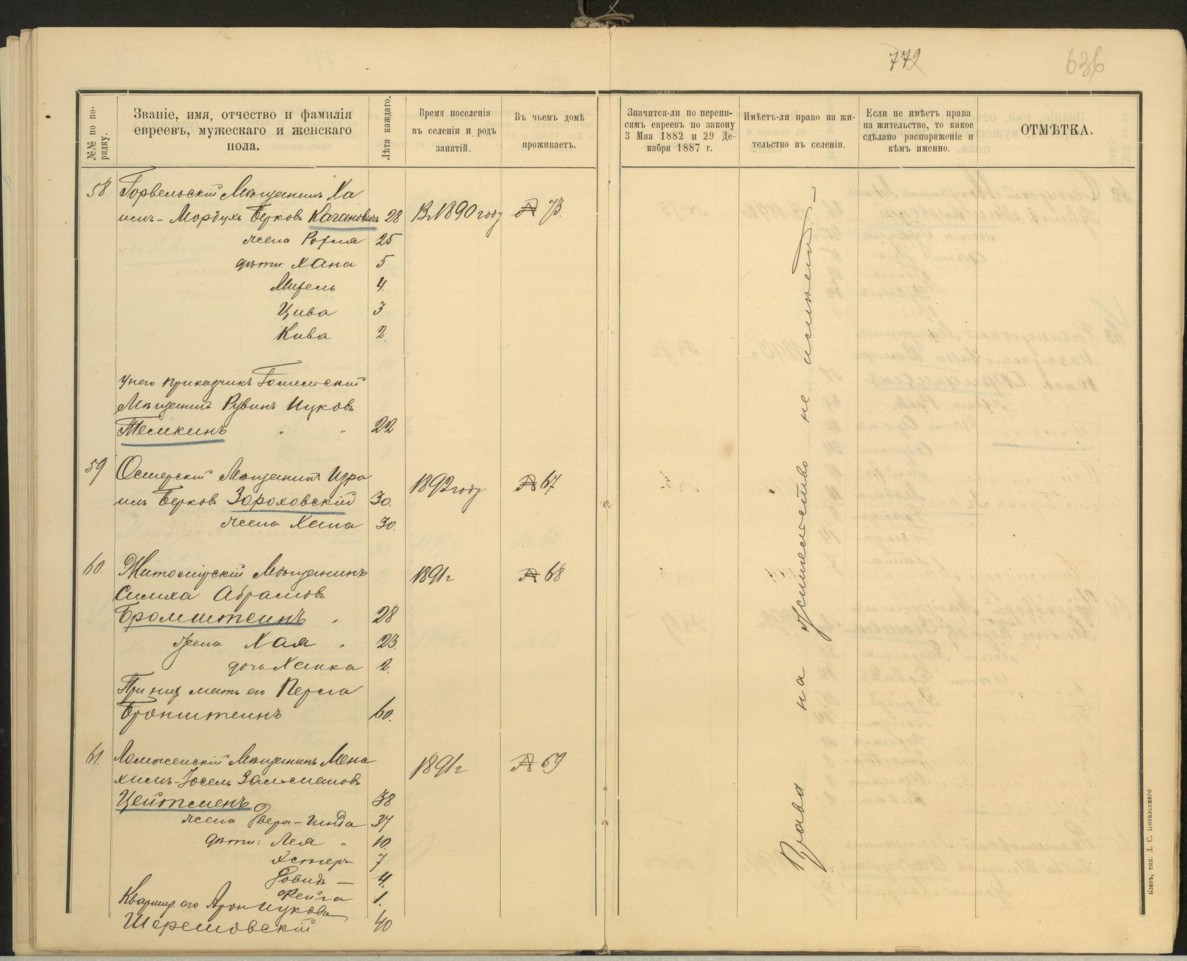 772
636
№№ по порядку.
Званіе, имя, отчество и фамилія
евреевъ, мужескаго и женскаго
пола.
Лѣта каждаго.
Время поселенія
въ селеніи и родъ
занятій.
Въ чьемъ домѣ
проживаетъ.
Значится-ли по перепи-
сямъ евреевъ по закону
3 Мая 1882 и 29 Де-
кабря 1887 г.
Имѣетъ-ли право на жи-
тельство въ селеніи.
Если не имѣетъ права
на жительство, то какое
сдѣлано распоряженіе и
кѣмъ именно.
ОТМѢТКА.
58 Горвельскій Мѣщанинъ Ха
имъ-Мордухъ Берковъ Кагановичъ 28 Въ 1890 году № 73.
жена Рохля 25
дѣти: Хана 5
4
Цива 3
Кива 2
у него прикащикъ Гомельскій
Мѣщанинъ Рувинъ Ицковъ
Темкинъ " " 22
59 Остерскій Мѣщанинъ Изра
иль Берковъ Зороховскій 30. 1892 году № 67
жена Хана 30.
60 Житомірскій Мѣщанинъ 1891 г № 68
Симха Абрамовъ
Бромштейнъ " 28
жена Хая " 23.
дочь Ханка 2.
При них мать его Перла
Бронштейнъ 60.
61 Мѣщанинъ Мена
химъ-Іосель Залмановъ 1891 г № 69
Цейтленъ 38
жена Двера-Гинда 37
дѣти: Лея " 10.
Эстеръ 7
Довидъ — 4.
Фейга 1.
Квартир его Арон Ицковъ
Шерешовскій 40
Права на жительство не имѣетъ
Кіевъ, тип. Д. С. Повальскаго